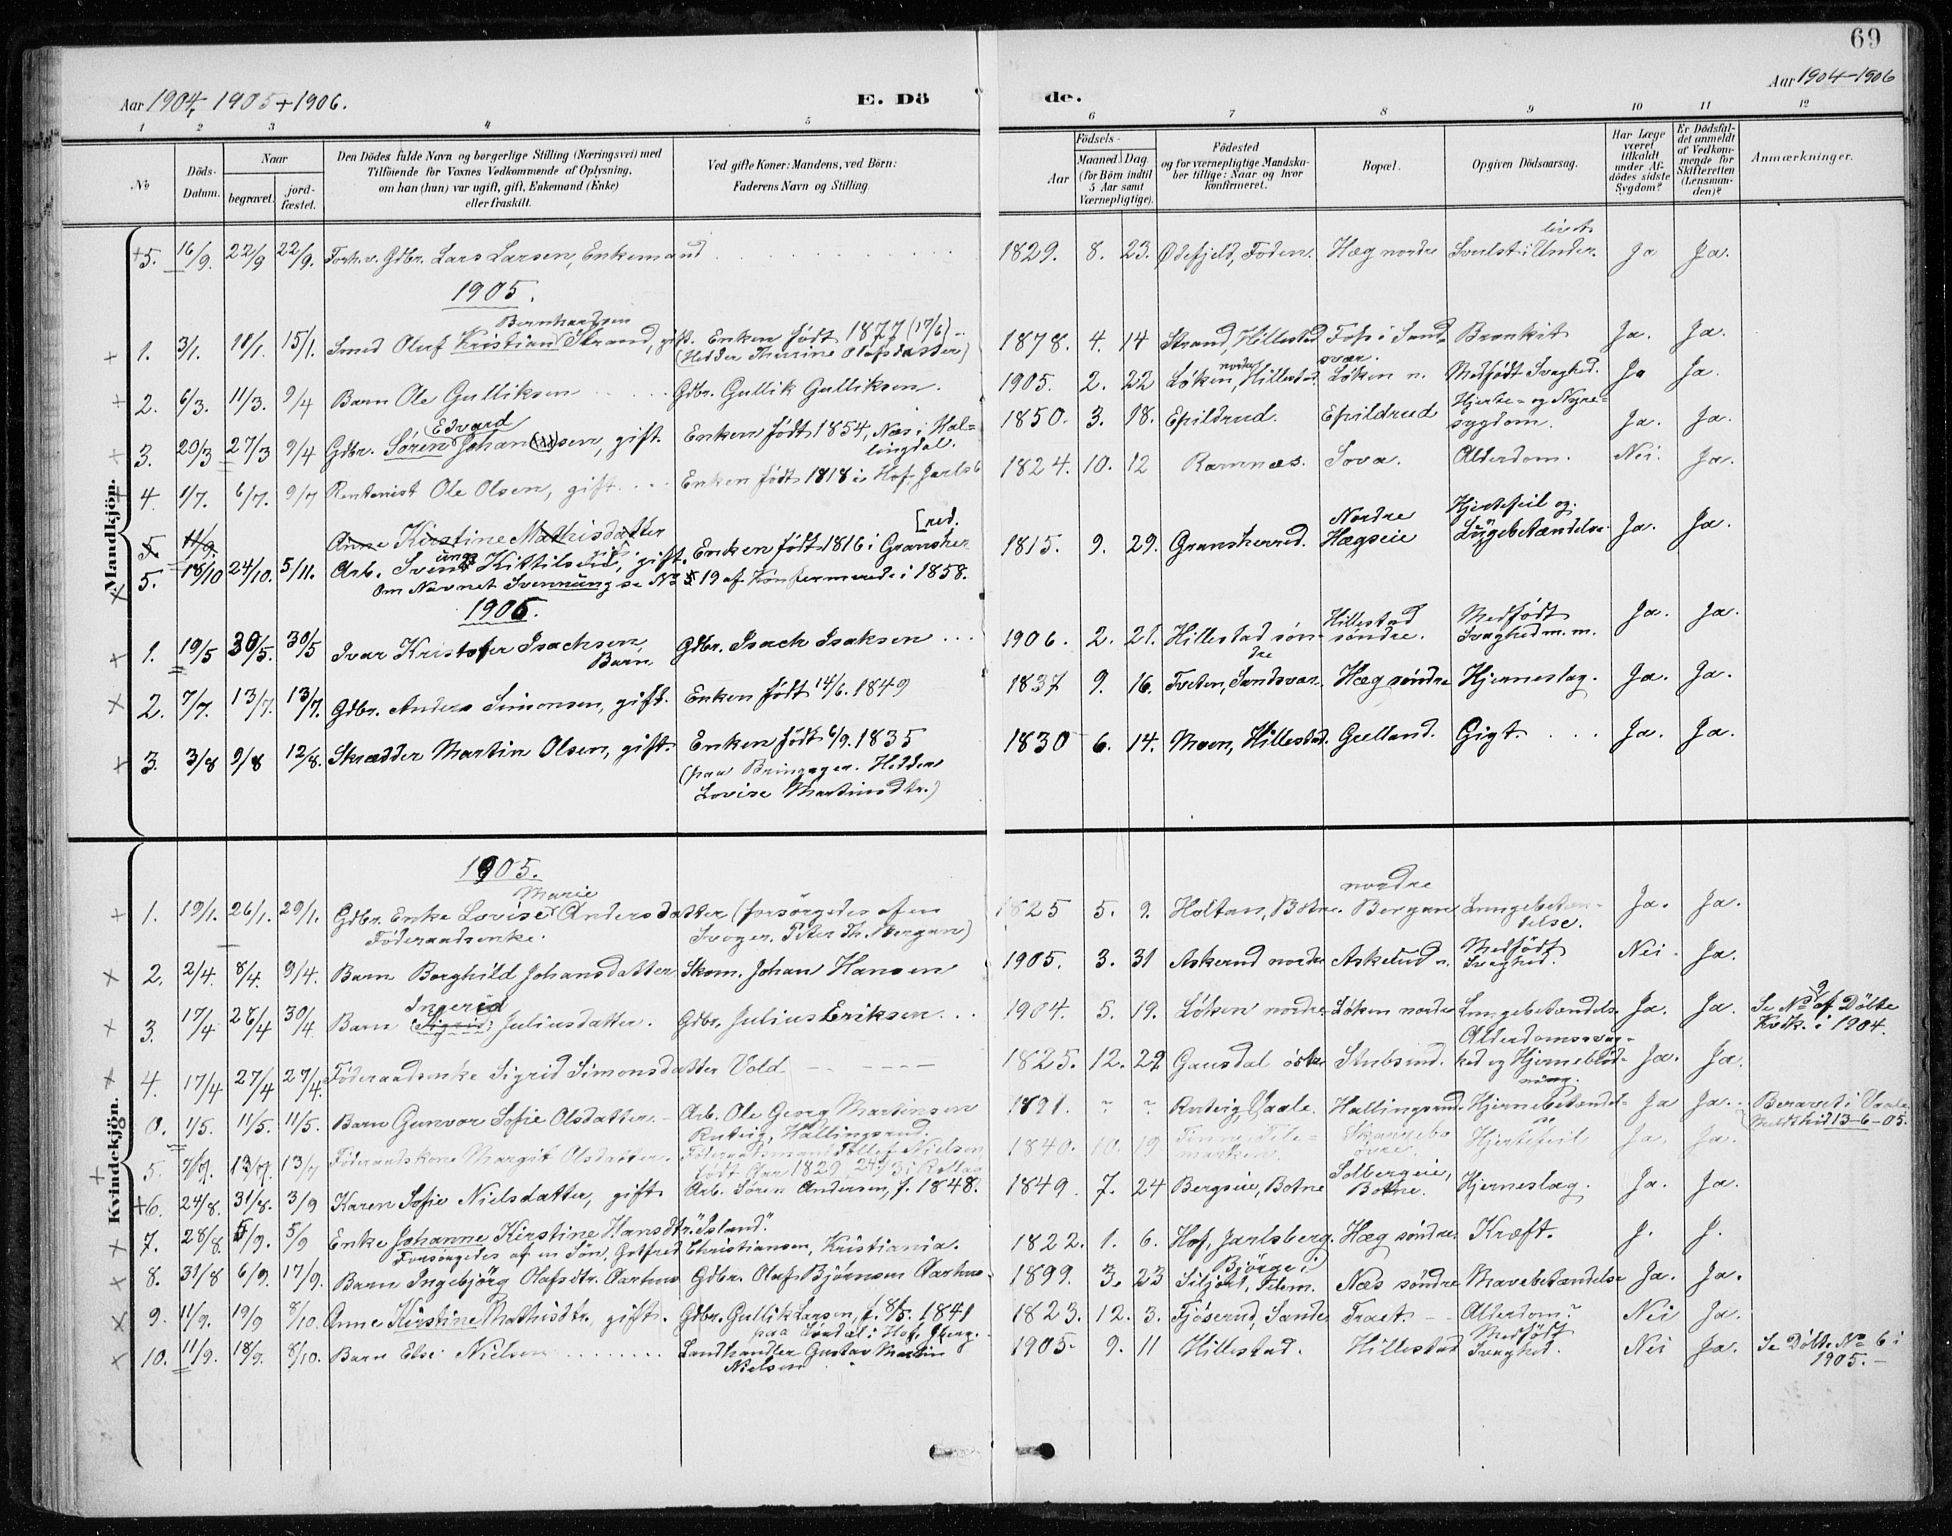 69
Aar 1904, 1905 + 1906.
E. Dö
de.
Aar 1904-1906
1 2 3 4 5 6 7 8 9 10 11 12
No
Döds-Datum.
Naar
begravet.
jord-fæstet.
Den Dödes fulde Navn og borgerlige Stilling (Næringsvei) med
Tilföiende for Voxnes Vedkommende af Oplysning,
om han (hun) var ugift, gift, Enkemand (Enke)
eller fraskilt.
Ved gifte Koner: Mandens, ved Börn:
Faderens Navn og Stilling.
Födsels-
Aar
Maaned
Dag
(for Börn indtil
5 Aar samt
Værnepligtige).
Födested
og for værnepligtige Mandska-
ber tillige: Naar og hvor
konfirmeret.
Bopæl.
Opgiven Dödsaarsag.
Har Læge
været
tilkaldt
under Af-
dödes sidste
Sygdom?
Er Dödsfal-
det anmeldt
af Vedkom-
mende for
Skifteretten
(Lensman-
den)?
Anmærkninger.
Mandkjön.
+5. 16/9. 22/9 22/9. Forh.v. Gdbr. Lars Larsen, Enkemand 1829. 8. 23. Ødefjeld, Foden. Hæg nordre Svulst i Under-livet Ja Ja.
1905.
+ 1. 3/1. 11/1. 15/1. Smed Oluf Kristian Bernhardsen Strand, gift. Enken født 1877 (17/6) 1878. 4. 14 Strand, Hillestad Fos i Sand-svær. Bronkit Ja. Ja.
(Hedder Thurine Olafsdatter)
+ 2. 6/3. 11/3. 9/4 Barn Ole Gulliksen Gdbr. Gullik Gulliksen. 1905. 2. 22 Løken nordre, Hillestad. Løken n. Medfødt Svaghed. Ja Ja.
+ 3. 20/3 27/3 9/4 Gdbr. Søren Edvard Johannesen, gift. Enken født 1854, Næs i Hal-lingdal. 1850. 3. 18. Eskildrud. Eskildrud Hjerte- og Nyre-sygdom. Ja. Ja.
+ 4. 1/7. 6/7. 9/7 Rentenist Ole Olsen, gift. Enken født 1818 i Hof, Jarlsb 1824. 10. 12 Ramnæs. Sova. Alderdom. Nei. Ja.
5 11/9. Anne Kirstine Mathisdatter
x 5. 18/10 24/10. 5/11. Arb. Svenung Kittilsen, gift. Enken født 1816 i Gransher[red. 1815. 9. 29. Gransherred. Nordre Hægseie Hjertefeil og Lungebetændelse. Ja. Ja.
Om Navnet Svennung se No 19 af Konfirmerede i 1858.
1906.
+ 1. 19/5 30/5. 30/5 Ivar Kristofer Isachsen, Barn Gdbr. Isach Isaksen 1906. 2. 21. Hillestad søn-dre Hillestad søndre. Medfødt Svaghed m.m. Ja. Ja.
x 2. 7/7. 13/7. 13/7. Gdbr. Anders Simonsen, gift. Enken født 14/6. 1849 1837 9. 16. Tveten, Sandsvær. Hæg søndre Hjerneslag. Ja. Ja.
x 3. 3/8 9/8 12/8. Skrædder Martin Olsen, gift. Enken født 6/9. 1835 1830 6. 14. Moen, Hillestad. Grelland. Gigt. Ja. Ja.
(paa Bringager. Hedder
Lovise Martinsdtr.)
Kvindekjön.
1905.
+ 1. 19/1. 26/1. 29/1. Gdbr. Enke Lovise Marie Andersdatter (forsørgedes af en 1825 5. 9. Holtan, Botne. nordre Bergan Lungebetæn-delse. Ja. Ja.
Føderaadsenke. Svoger, Peter Th. Bergan)
x 2. 2/4. 8/4. 9/4. Barn Borghild Johansdatter Skom. Johan Hansen 1905. 3. 31 Askerud nordre Askerud n. Medfødt Svaghed. Nei. Ja.
x 3. 17/4 28/4 30/4. Barn (Sigrid) Ingerid Juliusdatter. Gdbr. Julius Eriksen 1904. 5. 19. Løken nordre Løken nordre Lungebetændels. Ja. Ja. Se No 9 af Döbte Kvk. i 1904.
x 4. 17/4 27/4 27/4. Føderaadsenke Sigrid Simonsdatter Vold 1825. 12. 29 Gausdal østre Stubsrud. Alderdomssvag-hed og Hjerneblöd-ning. Ja. Ja.
0. 1/5. 11/5. 11/5. Barn Gunvor Sofie Olsdatter. Arb. Ole Georg Martinsen 1891. " " Rutvig, Vaale. Hallingsrud. Hjernebetændel-se Ja Ja. Begravet i Vaale
Rutvig, Hallingsrud. Meldt hid 13-6-05.
+ 5. 7/7. 13/7. 13/7 Føderaadskone Margit Olsdatter. Føderaadsmand Tollef Nielsen, 1840. 10. 19 Tinn, Tele-marken. Skarsebo øvre. Hjertefeil Ja. Ja.
født Aar 1829 24/3 i Rollag
+6. 24/8. 31/8. 3/9 Karen Sofie Nielsdatter, gift Arb. Søren Andersen, f. 1848. 1849. 7. 24 Bergseie, Botne Solbergeie, Botne. Hjerneslag. Ja. Ja.
x 7. 28/8. 5/9. 5/9 Enke Johanne Kirstine Hansdtr. "Island." 1822. 1. 6. Hof, Jarlsberg. Hæg søndre Kræft. J. J.
Forsørgedes af en Søn, Gotfred Christiansen, Kristiania.
x 8. 31/8 6/9. 17/9. Barn Ingebjörg Olafsdtr. Aarhus Gdbr. Olaf Bjørnsen Aarhus. 1899. 3. 23 Bjørge i Siljord, Telem. Næs søndre Mavebetændelse Ja. Ja.
x 9. 11/9. 19/9 8/10. Anne Kirstine Mathisdtr. gift. Gdbr. Gullik Larsen, f. 8/5. 1841 1823. 12. 3. Fjøserud, Sande Traet Alderdom? Nei Ja.
paa Løvdal i Hof, Jberg.
x 10. 11/9. 18/9. 8/10. Barn Else Nielsen Landhandler Gustav Martin Nielsen 1905. 9. 11 Hillestad. Hillestad Medfødt Svaghed. Nei Ja. Se Döbte No 6 i 1905.